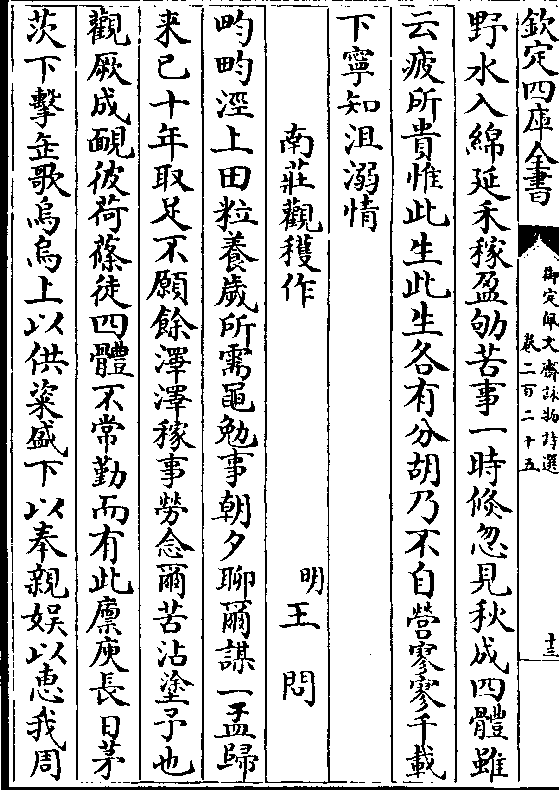 欽定四庫全書
御定佩文齋詠物詩選
卷二百二十五
十三
野水入綿延禾稼盈劬苦事一時倐忽見秋成四體雖
云疲所貴惟此生此生各有分胡乃不自營寥寥千載
下寧知沮溺情
南莊觀穫作
明王問
畇畇溼上田粒養歲所需黽勉事朝夕聊爾謀一盂歸
来已十年取足不願餘澤澤稼事勞念爾苦沾塗予也
觀厥成靦彼荷蓧徒四體不常勤而有此廪庾長日茅
茨下擊缶歌烏烏上以供粢盛下以奉親娱以惠我周